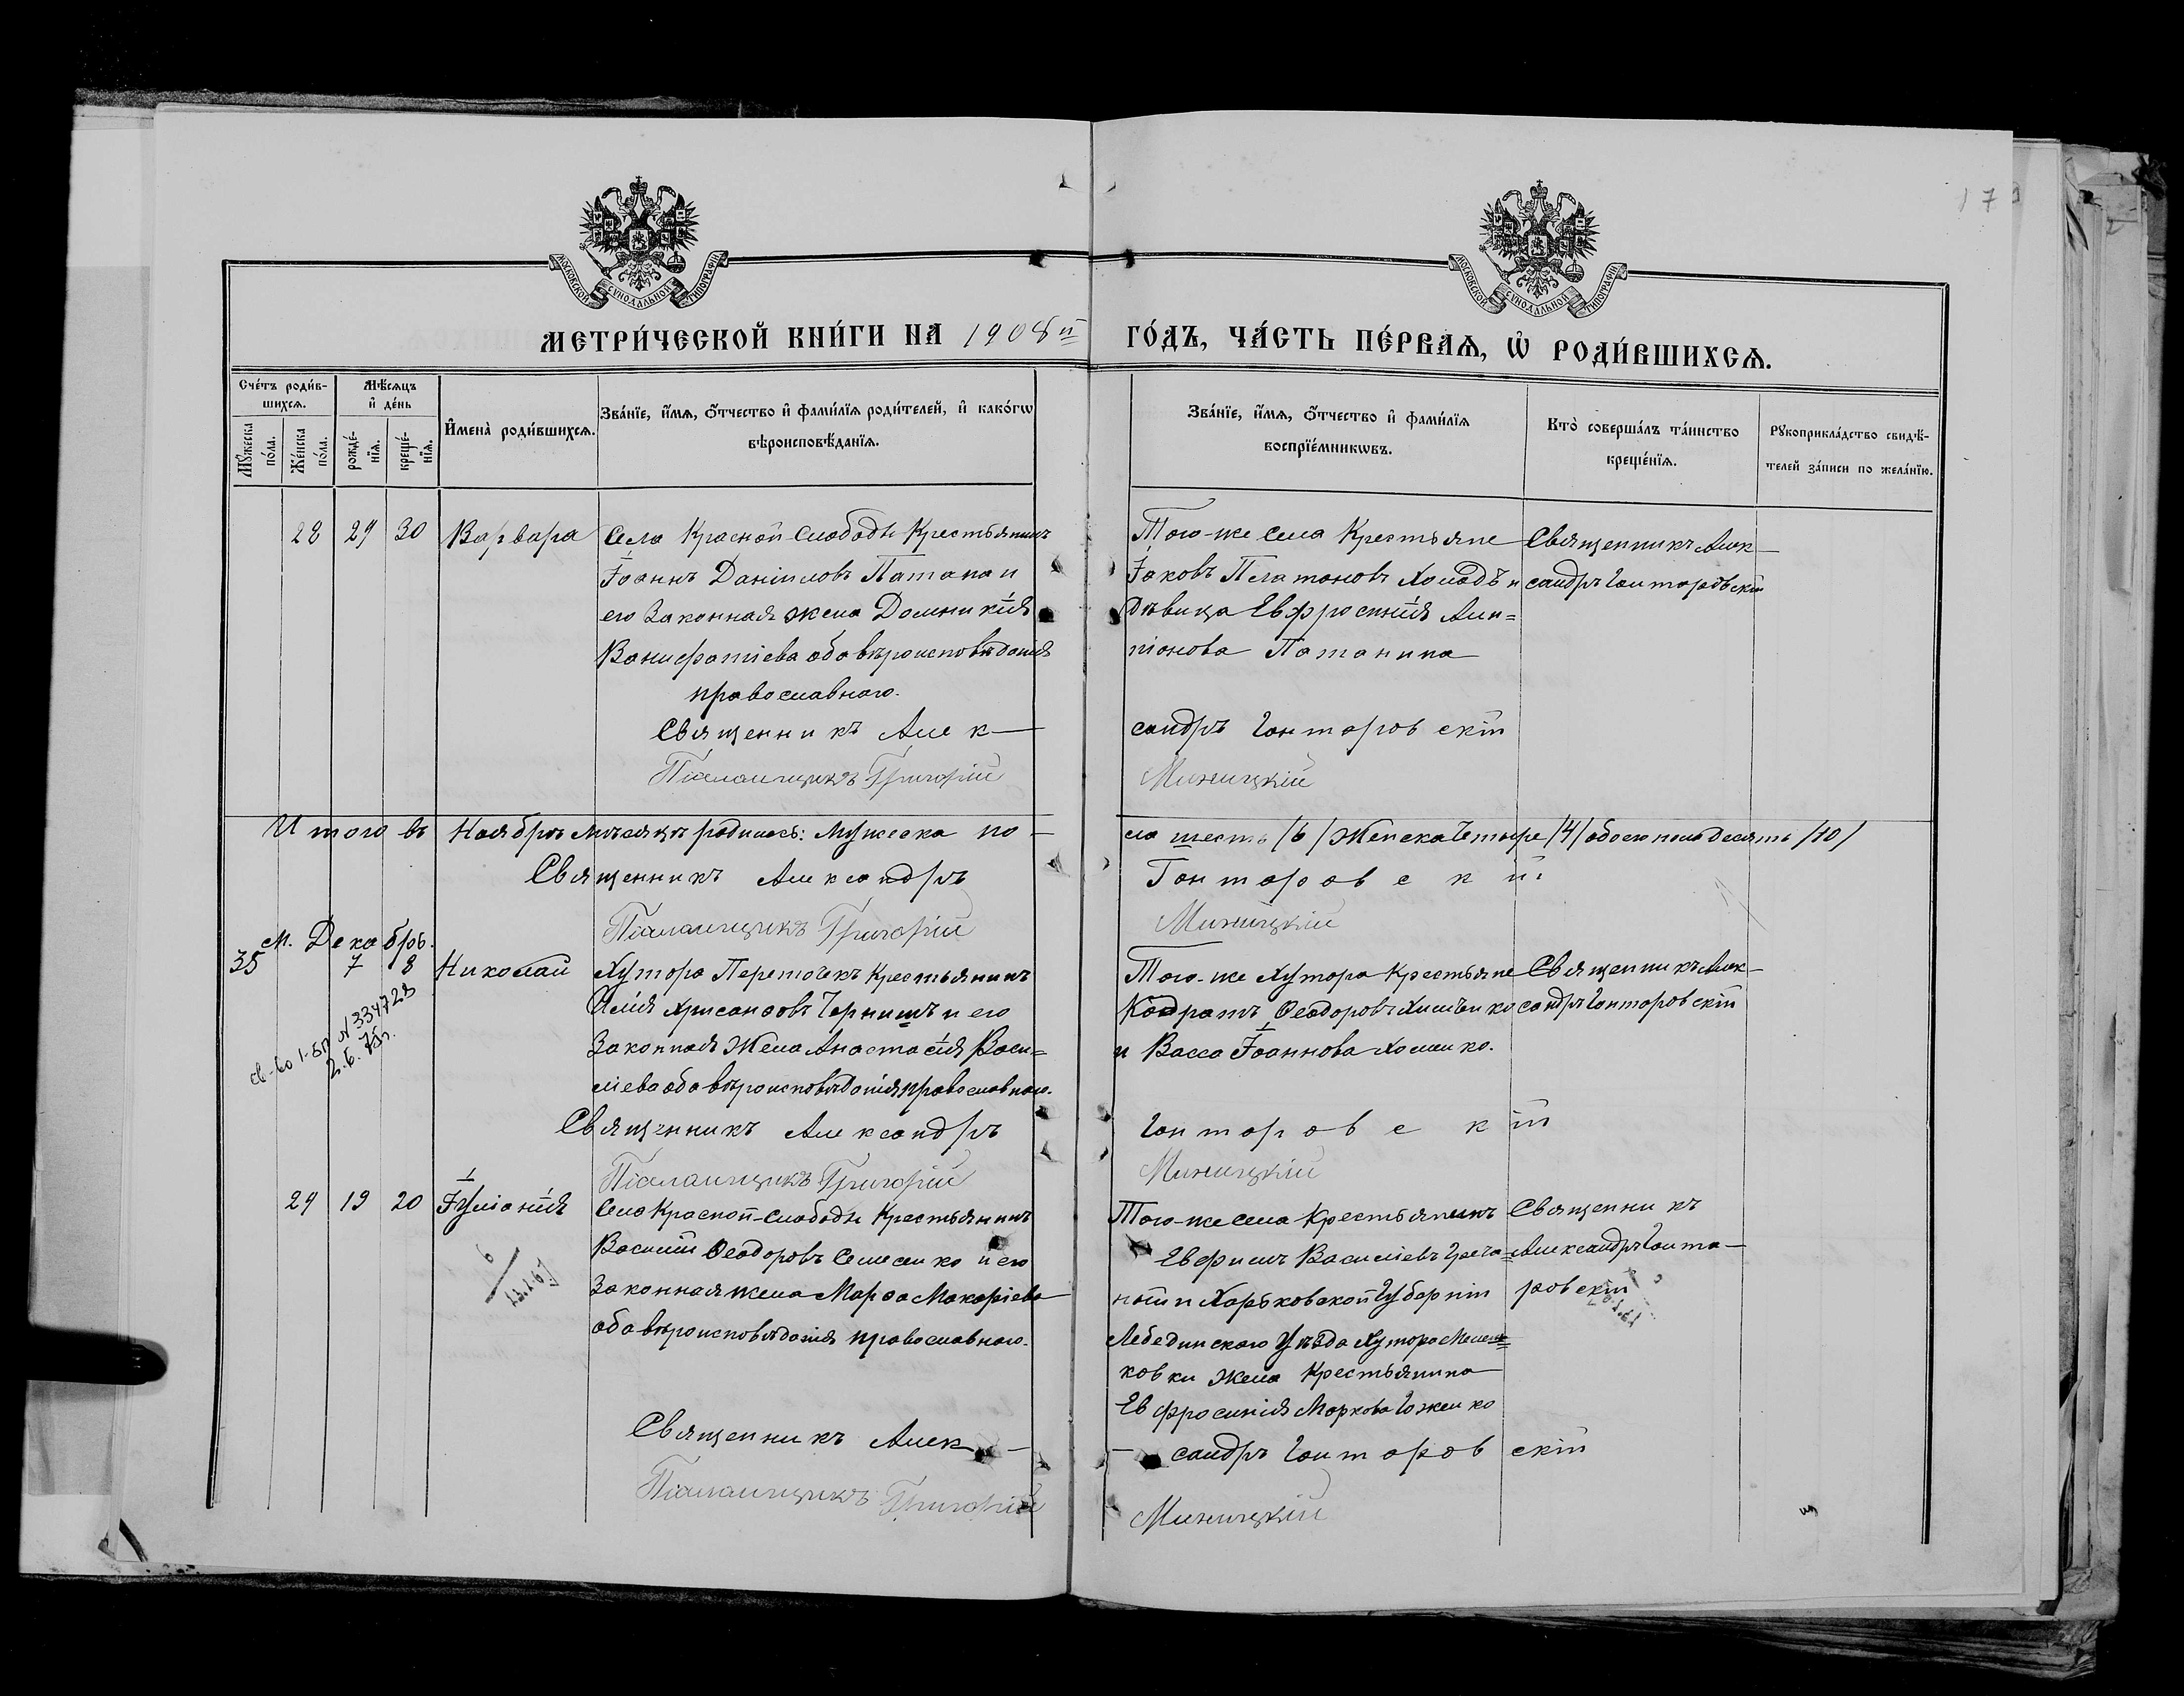 170
МОСКОВСКОЙ СУНОДАЛЬНОЙ ТИПОГРАФІИ
МОСКОВСКОЙ СУНОДАЛЬНОЙ ТИПОГРАФІИ
МЕТРИ́ЧЕСКОЙ КНИ́ГИ НА 1908й ГО́ДЪ, ЧА́СТЬ ПЕ́РВАѦ, Ѡ҆ РОДИ́ВШИХСѦ.
Сче́тъ роди́в-
шихсѧ.
Мꙋ́жеска по́ла.
Же́нска по́ла.
Мѣ́сѧцъ
и҆ де́нь
рожде́-нїѧ.
креще́-нїѧ.
И҆мена̀ роди́вшихсѧ.
Зва́нїе, и҆́мѧ, ѻ҆́тчество и҆ фами́лїѧ роди́телей, и҆ како́гѡ
вѣроисповѣ́данїѧ.
Зва́нїе, и҆́мѧ, ѻ҆́тчество и҆ фами́лїѧ
воспрїе́мникѡвъ.
Кто̀ соверша́лъ та́инство
креще́нїѧ.
Рꙋкоприкла́дство свидѣ́-
телей за́писи по жела́нїю.
28 29 30 Варвара
Села Красной-Слободы Крестьянинъ
Іоаннъ Даніиловъ Патана и
его Законная жена Домникія
Вонифатіева оба вѣроисповѣданія
православнаго.
Священникъ Алек—
Псаломщикъ Григорій
Того-же села Крестьяне
Іаковъ Платоновъ Холодъ и
дѣвица Евфросинія Алип=
піонова Патанина
сандръ Гонторовскій
Миницкій
Священникъ Алек—
сандръ Гонторовскій
Итого въ Ноябрѣ мѣсяцѣ родилось: мужеска по—
ла шесть /6/ Женска Четыре /4/ обоего пола десять /10/
Священникъ Александръ Гонторовскій
Псаломщикъ Григорій Миницкій
М. Декабрь.
35 7 8 Николай
св-во I-БП № 334728
Хутора Переточекъ Крестьянинъ
Илія Хрисанѳовъ Чернишъ и его
Законная Жена Анастасія Васи=
ліева оба вѣроисповѣданія православнаго.
Священникъ Александръ
Псаломщикъ Григорій
Того-же Хутора Крестьяне
Кодратъ Ѳеодоровъ
и Васса Іоаннова Хоменко.
Гонторовскій
Миницкій
Священникъ Алек—
сандръ Гонторовскій
29 19 20 Іуліанія
Села Красной-Слободы Крестьянинъ
Василій Ѳеодоровъ Семенко и его
Законная жена Марѳа Макаріева
оба вѣроисповѣданія православнаго.
Священникъ Алек—
Псаломщикъ Григорій
Того-же села Крестьянинъ
Евфимъ Василіевъ Греча=
ный и Харьковской Губерніи
Лебединскаго Уѣзда Хутора
ковки Жена Крестьянина
Евфросинія Маркова
сандръ Гонторовскій
Миницкій
Священникъ
Александръ Гонто—
ровскій